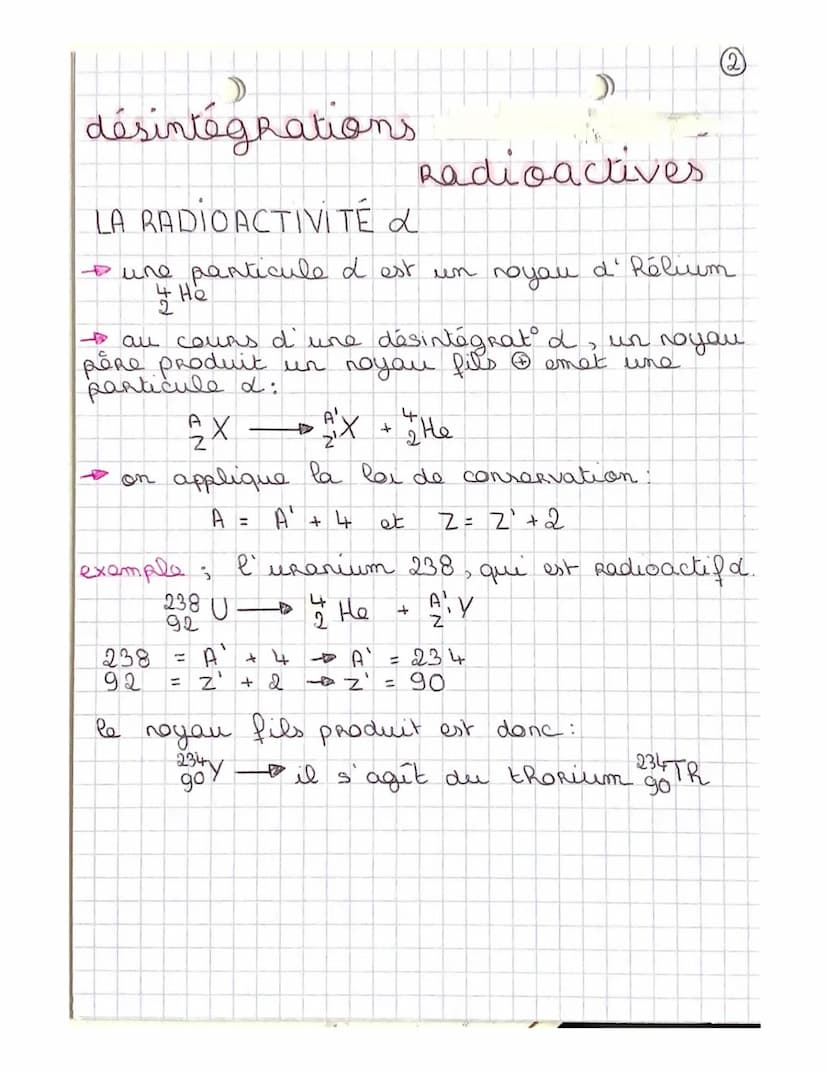 2
désintégrations
radioactives
LA RADIOACTIVITÉ α
→ une particule α est un noyau d'hélium
⁴₂He
→ au cours d'une désintégrat° α, un noyau
père produit un noyau fils ⊕ émet une
particule α :
ᴬ_Z X → ᴬ'_Z' X + ⁴₂He
→ on applique la loi de conservation :
A = A' + 4 et Z = Z' + 2
exemple ; l'uranium 238, qui est radioactif α.
²³⁸₉₂U → ⁴₂He + ᴬ'_Z' Y
238 = A' + 4 → A' = 234
92 = Z' + 2 → Z' = 90
le noyau fils produit est donc :
²³⁴₉₀Y → il s'agît du thorium ²³⁴₉₀Th